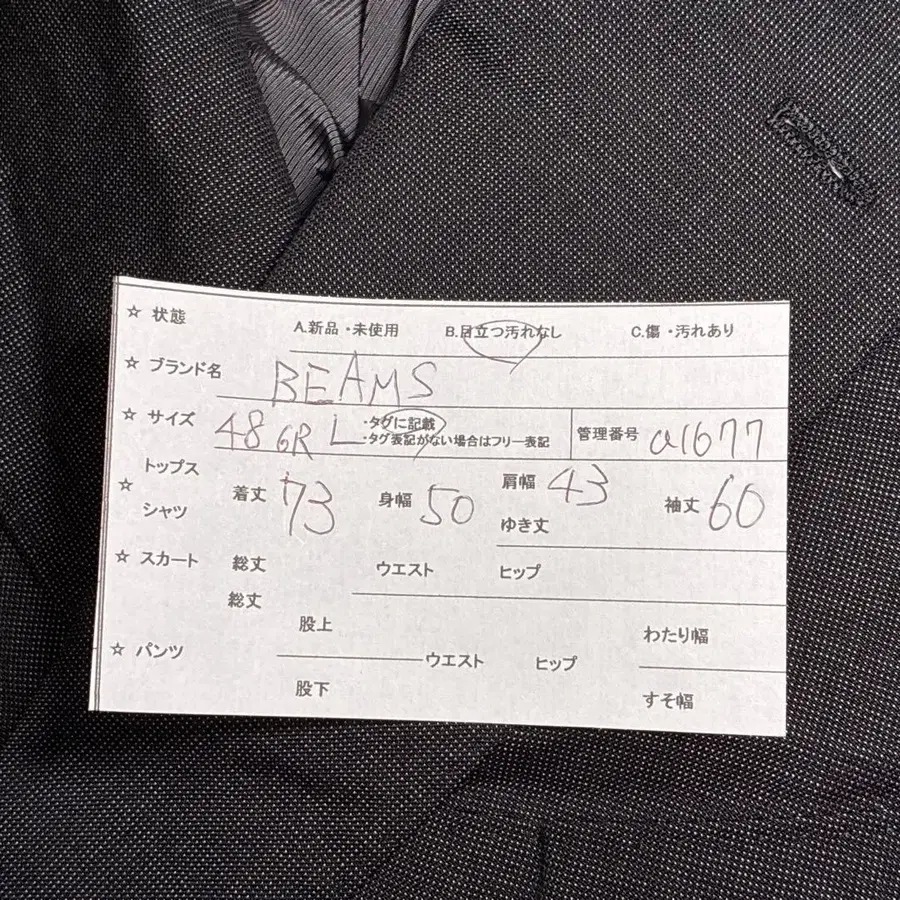 ☆ 状態 A.新品・未使用 B.目立つ汚れなし C.傷・汚れあり
☆ ブランド名 BEAMS
☆ サイズ 48 6R L ・タグに記載 管理番号 a1677
・タグ表記がない場合はフリー表記
トップス
☆ 着丈 73 身幅 50 肩幅 43 袖丈 60
シャツ ゆき丈
☆ スカート 総丈 ウエスト ヒップ
総丈
股上 わたり幅
☆ パンツ ウエスト ヒップ
股下 すそ幅